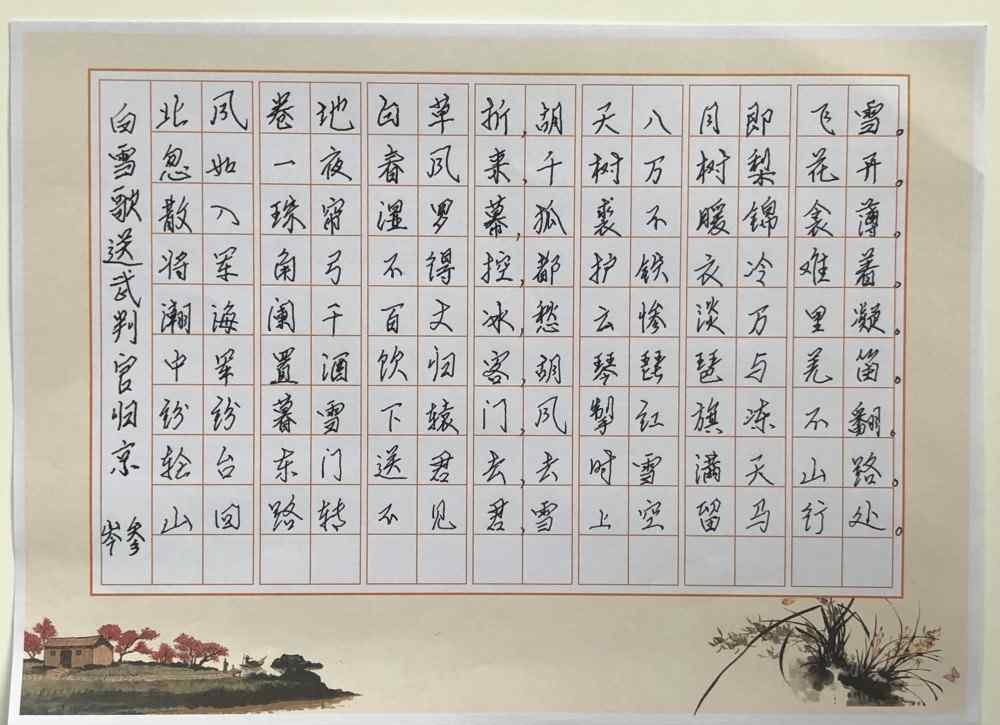 白雪歌送武判官归京
岑参
北风卷地白草折,胡天八月即飞雪。
忽如一夜春风来,千树万树梨花开。
散入珠帘湿罗幕,狐裘不暖锦衾薄。
将军角弓不得控,都护铁衣冷难着。
瀚海阑干百丈冰,愁云惨淡万里凝。
中军置酒饮归客,胡琴琵琶与羌笛。
纷纷暮雪下辕门,风掣红旗冻不翻。
轮台东门送君去,去时雪满天山路。
山回路转不见君,雪上空留马行处。